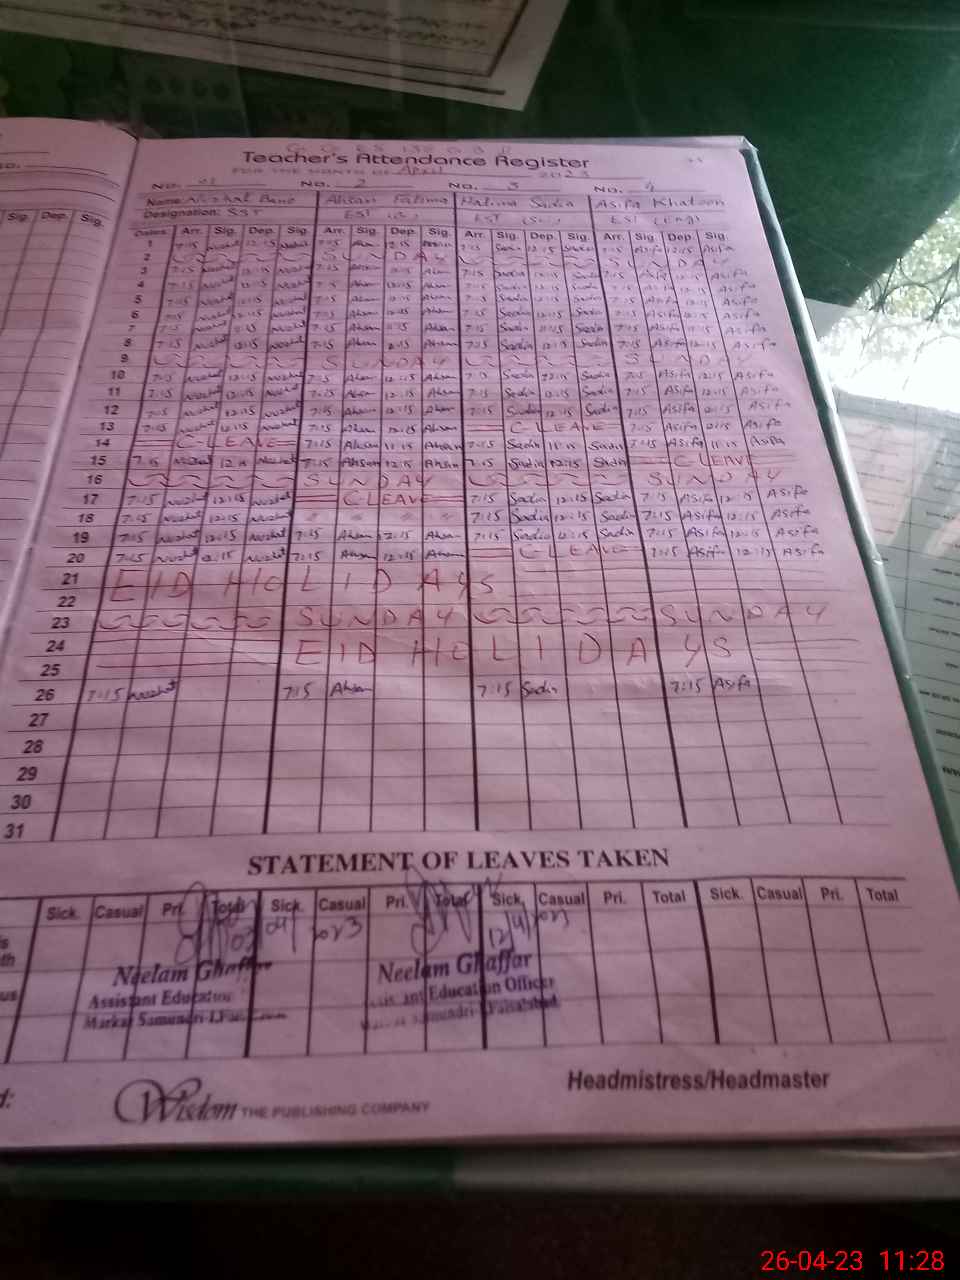 Teacher's Attendance Register
FOR THE MONTH OF April 2023
No. 01 No. 2 No. 3 No. 4
Name: Nuzhat Bano Ahsan Fatima Halima Sadia Asifa Khatoon
Designation: SST EST EST EST (Eng)
Dates Arr. Sig. Dep. Sig. Arr. Sig. Dep. Sig. Arr. Sig. Dep. Sig. Arr. Sig. Dep. Sig.
1 7:15 Nuzhat 12:15 Nuzhat 7:15 Ahsan 12:15 Ahsan 7:15 Sadia 12:15 Sadia 7:15 Asifa 12:15 Asifa
2 SUNDAY SUNDAY
3 7:15 Nuzhat 12:15 Nuzhat 7:15 Ahsan 12:15 Ahsan 7:15 Sadia 12:15 Sadia 7:15 Asifa 12:15 Asifa
4 7:15 Nuzhat 12:15 Nuzhat 7:15 Ahsan 12:15 Ahsan 7:15 Sadia 12:15 Sadia 7:15 Asifa 12:15 Asifa
5 7:15 Nuzhat 12:15 Nuzhat 7:15 Ahsan 12:15 Ahsan 7:15 Sadia 12:15 Sadia 7:15 Asifa 12:15 Asifa
6 7:15 Nuzhat 12:15 Nuzhat 7:15 Ahsan 12:15 Ahsan 7:15 Sadia 12:15 Sadia 7:15 Asifa 12:15 Asifa
7 7:15 Nuzhat 11:15 Nuzhat 7:15 Ahsan 11:15 Ahsan 7:15 Sadia 11:15 Sadia 7:15 Asifa 11:15 Asifa
8 7:15 Nuzhat 12:15 Nuzhat 7:15 Ahsan 12:15 Ahsan 7:15 Sadia 12:15 Sadia 7:15 Asifa 12:15 Asifa
9 SUNDAY SUNDAY
10 7:15 Nuzhat 12:15 Nuzhat 7:15 Ahsan 12:15 Ahsan 7:15 Sadia 12:15 Sadia 7:15 Asifa 12:15 Asifa
11 7:15 Nuzhat 12:15 Nuzhat 7:15 Ahsan 12:15 Ahsan 7:15 Sadia 12:15 Sadia 7:15 Asifa 12:15 Asifa
12 7:15 Nuzhat 12:15 Nuzhat 7:15 Ahsan 12:15 Ahsan 7:15 Sadia 12:15 Sadia 7:15 Asifa 12:15 Asifa
13 7:15 Nuzhat 12:15 Nuzhat 7:15 Ahsan 12:15 Ahsan C LEAVE 7:15 Asifa 12:15 Asifa
14 C-LEAVE 7:15 Ahsan 11:15 Ahsan 7:15 Sadia 11:15 Sadia 7:15 Asifa 11:15 Asifa
15 7:15 Nuzhat 12:15 Nuzhat 7:15 Ahsan 12:15 Ahsan 7:15 Sadia 12:15 Sadia C LEAVE
16 SUNDAY SUNDAY
17 7:15 Nuzhat 12:15 Nuzhat C LEAVE 7:15 Sadia 12:15 Sadia 7:15 Asifa 12:15 Asifa
18 7:15 Nuzhat 12:15 Nuzhat " " " " 7:15 Sadia 12:15 Sadia 7:15 Asifa 12:15 Asifa
19 7:15 Nuzhat 12:15 Nuzhat 7:15 Ahsan 12:15 Ahsan 7:15 Sadia 12:15 Sadia 7:15 Asifa 12:15 Asifa
20 7:15 Nuzhat 12:15 Nuzhat 7:15 Ahsan 12:15 Ahsan C LEAVE 7:15 Asifa 12:15 Asifa
21 EID HOLIDAYS
22
23 SUNDAY SUNDAY
24 EID HOLIDAYS
25
26 7:15 Nuzhat 7:15 Ahsan 7:15 Sadia 7:15 Asifa
27
28
29
30
31
STATEMENT OF LEAVES TAKEN
Sick. Casual Pri. Total Sick. Casual Pri. Total Sick. Casual Pri. Total Sick. Casual Pri. Total
03/04/2023 12/4/2023
Neelam Ghaffar Neelam Ghaffar
Assistant Education Education Officer
Markaz Samundri-I, Samundri-I, Faisalabad
Headmistress/Headmaster
Wisdom THE PUBLISHING COMPANY
26-04-23 11:28